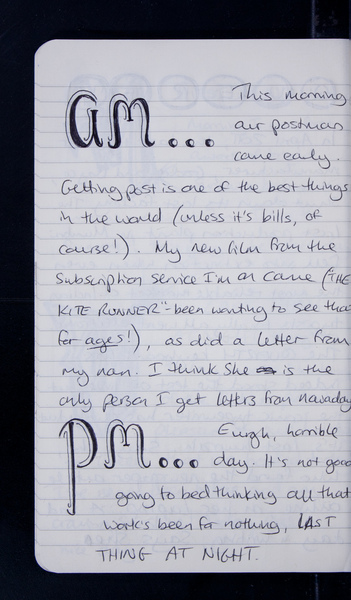 AM... This morning
our postman
came early.
Getting post is one of the best things
in the world (unless it's bills, of
course!). My new film from the
subscription service I'm on came ("THE
KITE RUNNER"- been wanting to see tha
for ages!), as did a letter from
my nan. I think she is the
only person I get letters from nowaday
PM... Eurgh, horrible
day. It's not good
going to bed thinking all that
work's been for nothing, LAST
THING AT NIGHT.